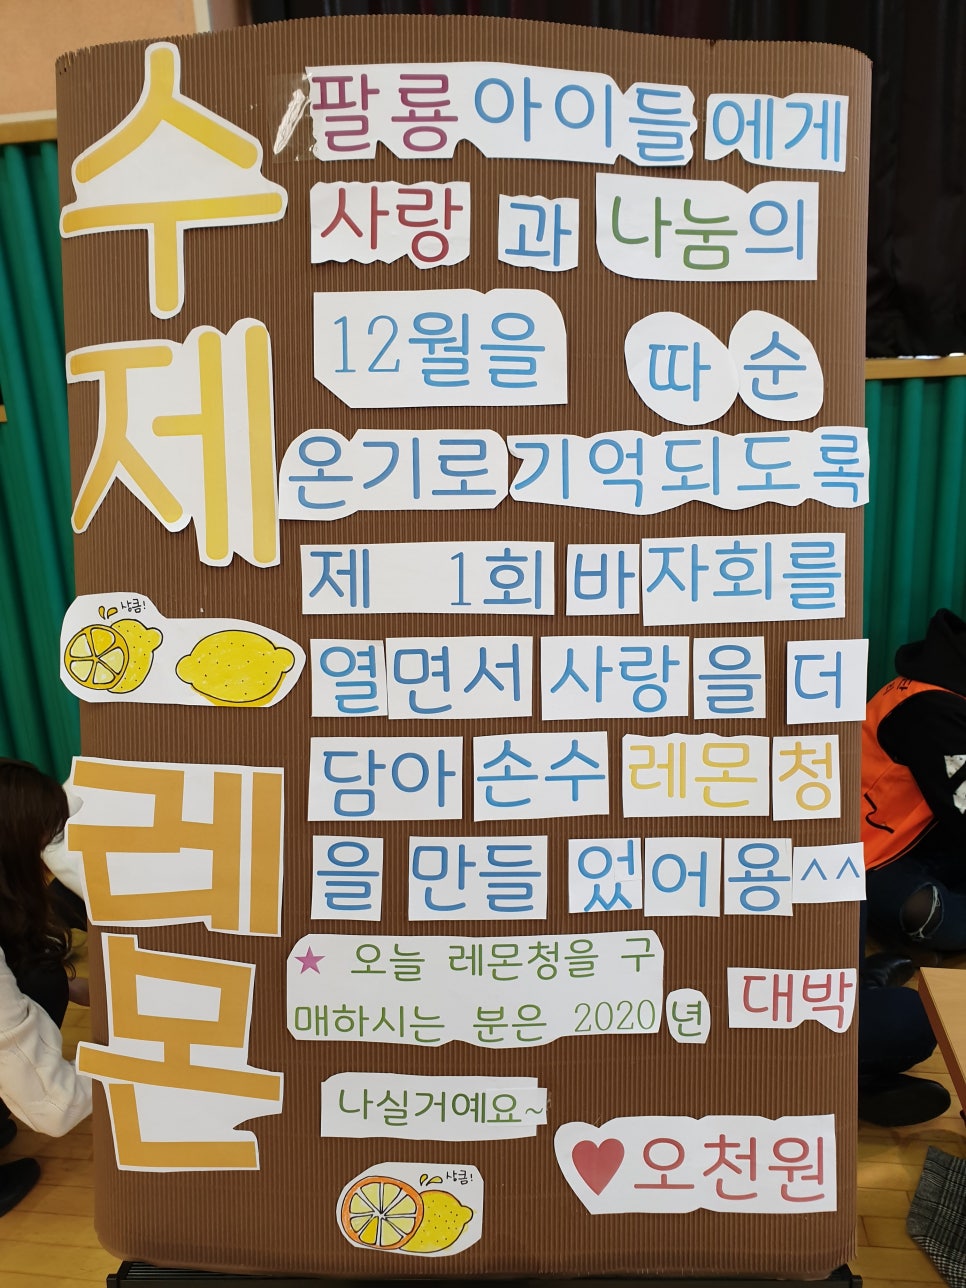 수제
레몬
팔룡 아이들에게
사랑 과 나눔의
12월을 따 순
온기로 기억되도록
제 1회 바자회를
열면서 사랑을 더
담아 손수 레몬청
을 만들 었어용^^
★ 오늘 레몬청을 구
매하시는 분은 2020년 대박
나실거예요~
♥오천원
상큼!
상큼!